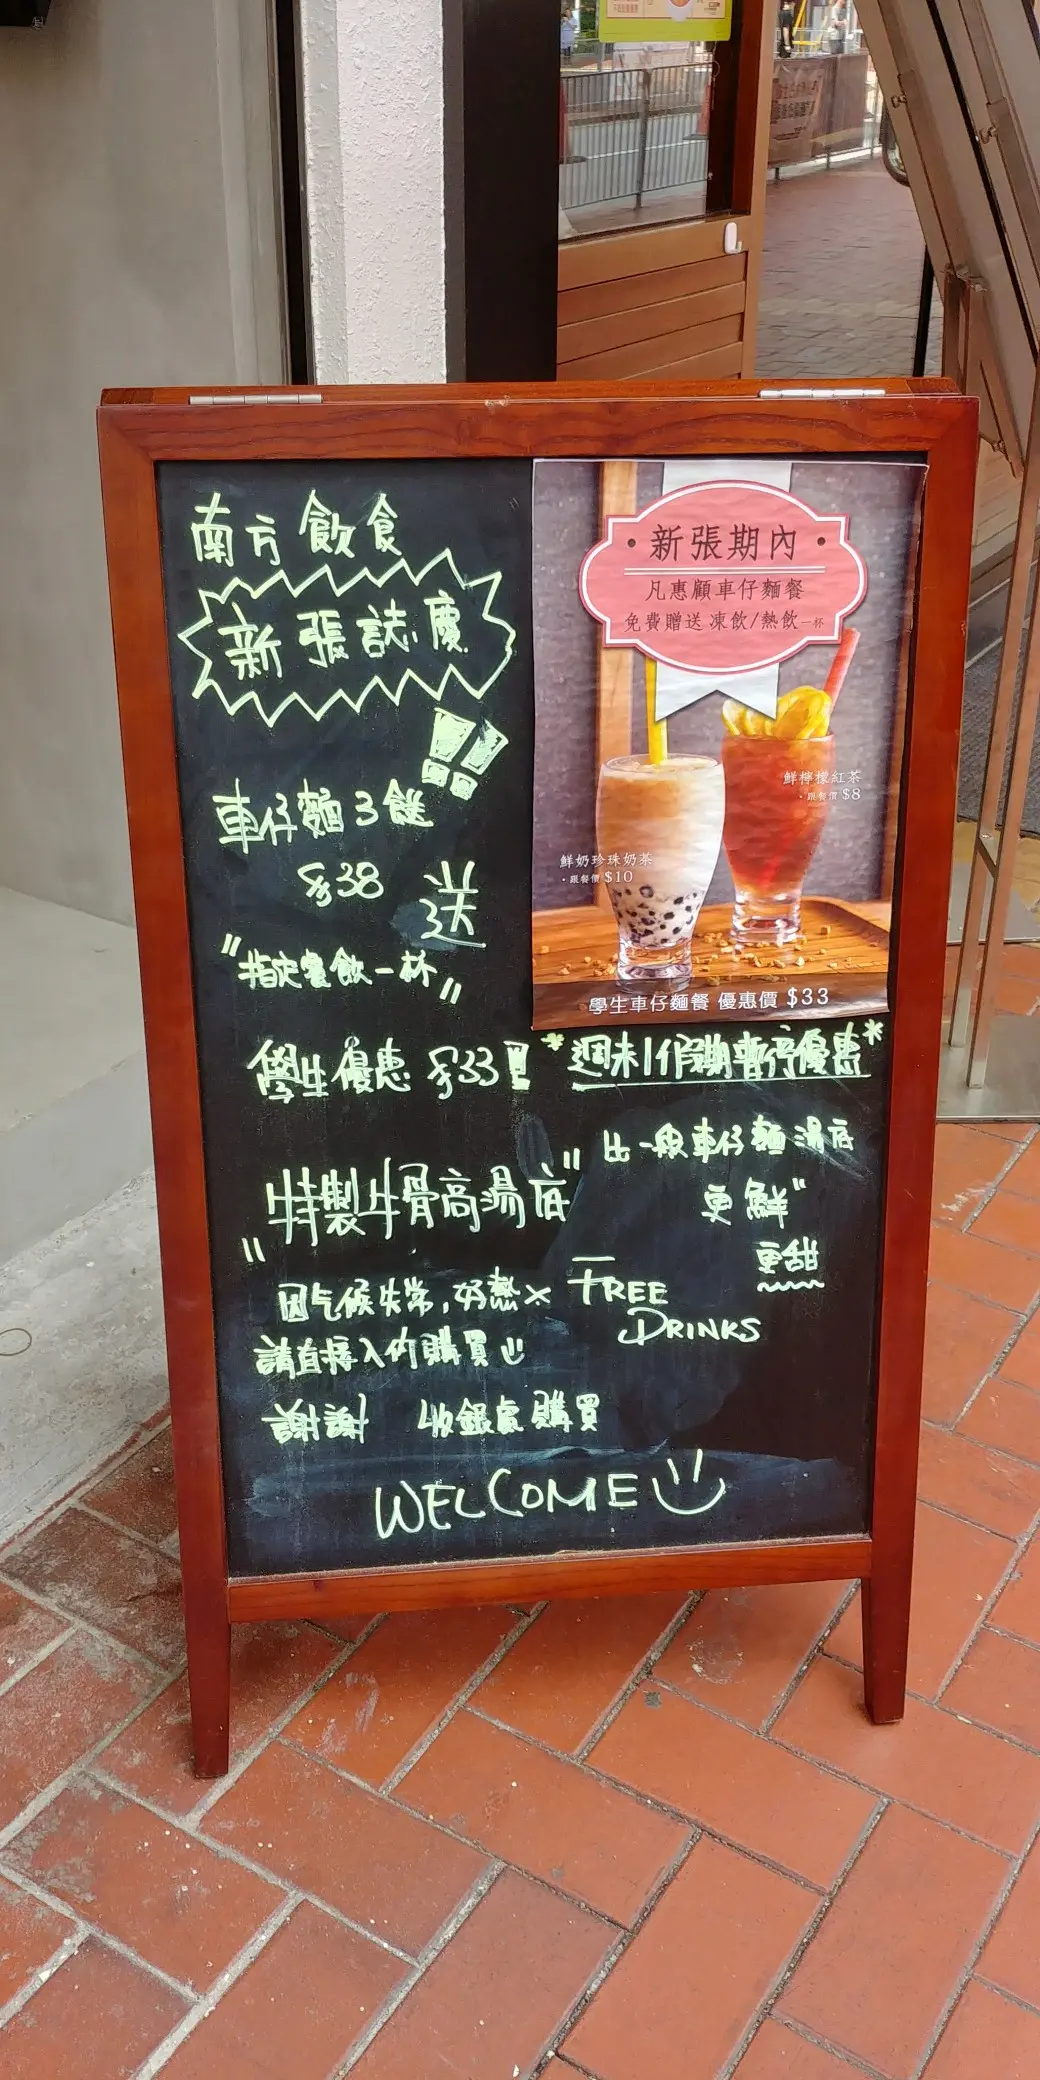 南方飲食
新張誌慶
!!
車仔麵3餸
$38 送
"指定餐飲一杯"
學生優惠 $33
*週末/假期暫停優惠*
"特製牛骨高湯底"
比一般車仔麵湯底
更鮮"
更甜
因气候失常,好熱
FREE
DRINKS
請直接入內購買
謝謝 收銀處購買
WELCOME
新張期內
凡惠顧車仔麵餐
免費贈送 凍飲/熱飲一杯
鮮檸檬紅茶
·跟餐價 $8
鮮奶珍珠奶茶
·跟餐價 $10
學生車仔麵餐 優惠價 $33